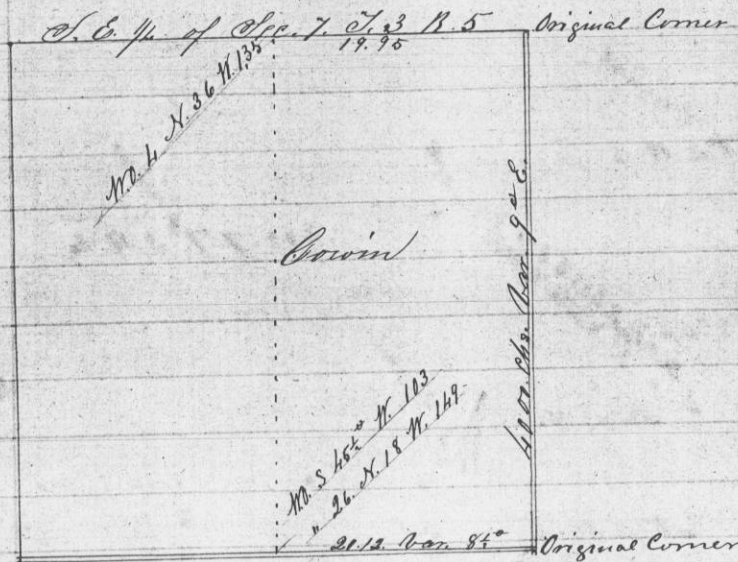 S. E. 1/4 of Sec. 7. T. 3 R. 5 Original Corner
19.95
W.O. 4 N. 36 W. 135
Gowin
40.00 Chs. Var 9° E.
W.O. 5 46½° W. 103
" 26. N. 18 W. 149
20.12. Var. 8½° Original Corner